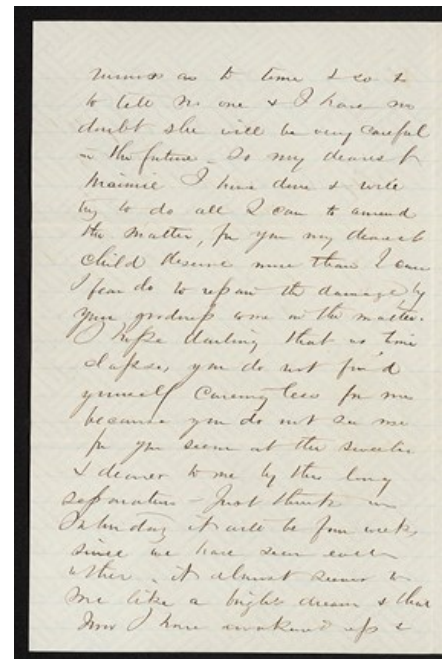 as to time & so &
to tell no one & I have no
doubt she will be very careful
in the future - So my dearest
Maimie I have done & will
try to do all I can to amend
the matter, for you my dearest
child deserve more than I can
I fear do to repair the damage by
your goodness in the matter.
I hope darling that as time
elapses, you do not find
yourself caring less for me
because you do not see me
for you seem all the sweeter
& dearer to me by this long
separation - Just think on
Saturday it will be four weeks
since we have seen each
other. it almost seems to
me like a bright dream & that
now I have awakened up &